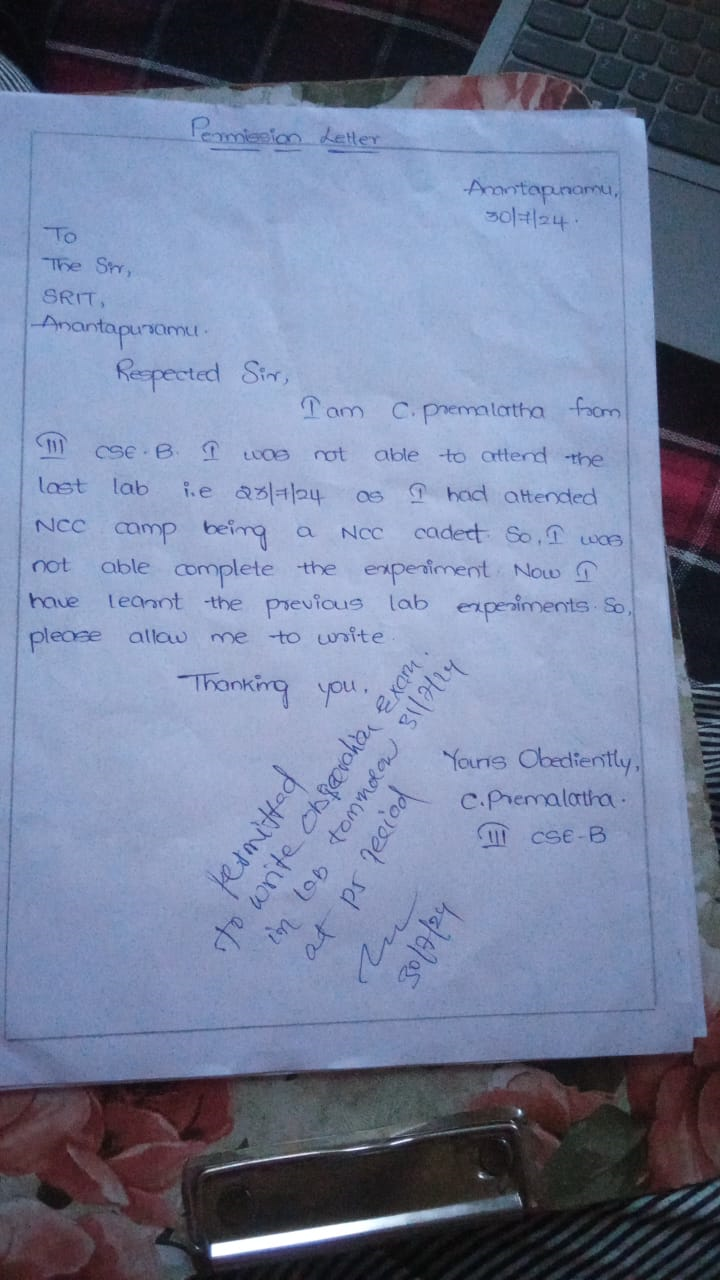 Permission Letter
Anantapuramu,
30/7/24.
To
The Sir,
SRIT,
Anantapuramu.
Respected Sir,
I am C. premalatha from
III CSE-B. I was not able to attend the
last lab i.e 23/7/24 as I had attended
NCC camp being a NCC cadet. So, I was
not able complete the experiment. Now I
have learnt the previous lab experiments. So,
please allow me to write.
Thanking you.
Yours Obediently,
C.Premalatha.
III CSE-B
permitted
To write observation Exam.
in lab tommorow 31/7/24
at ps peciod
30/7/24